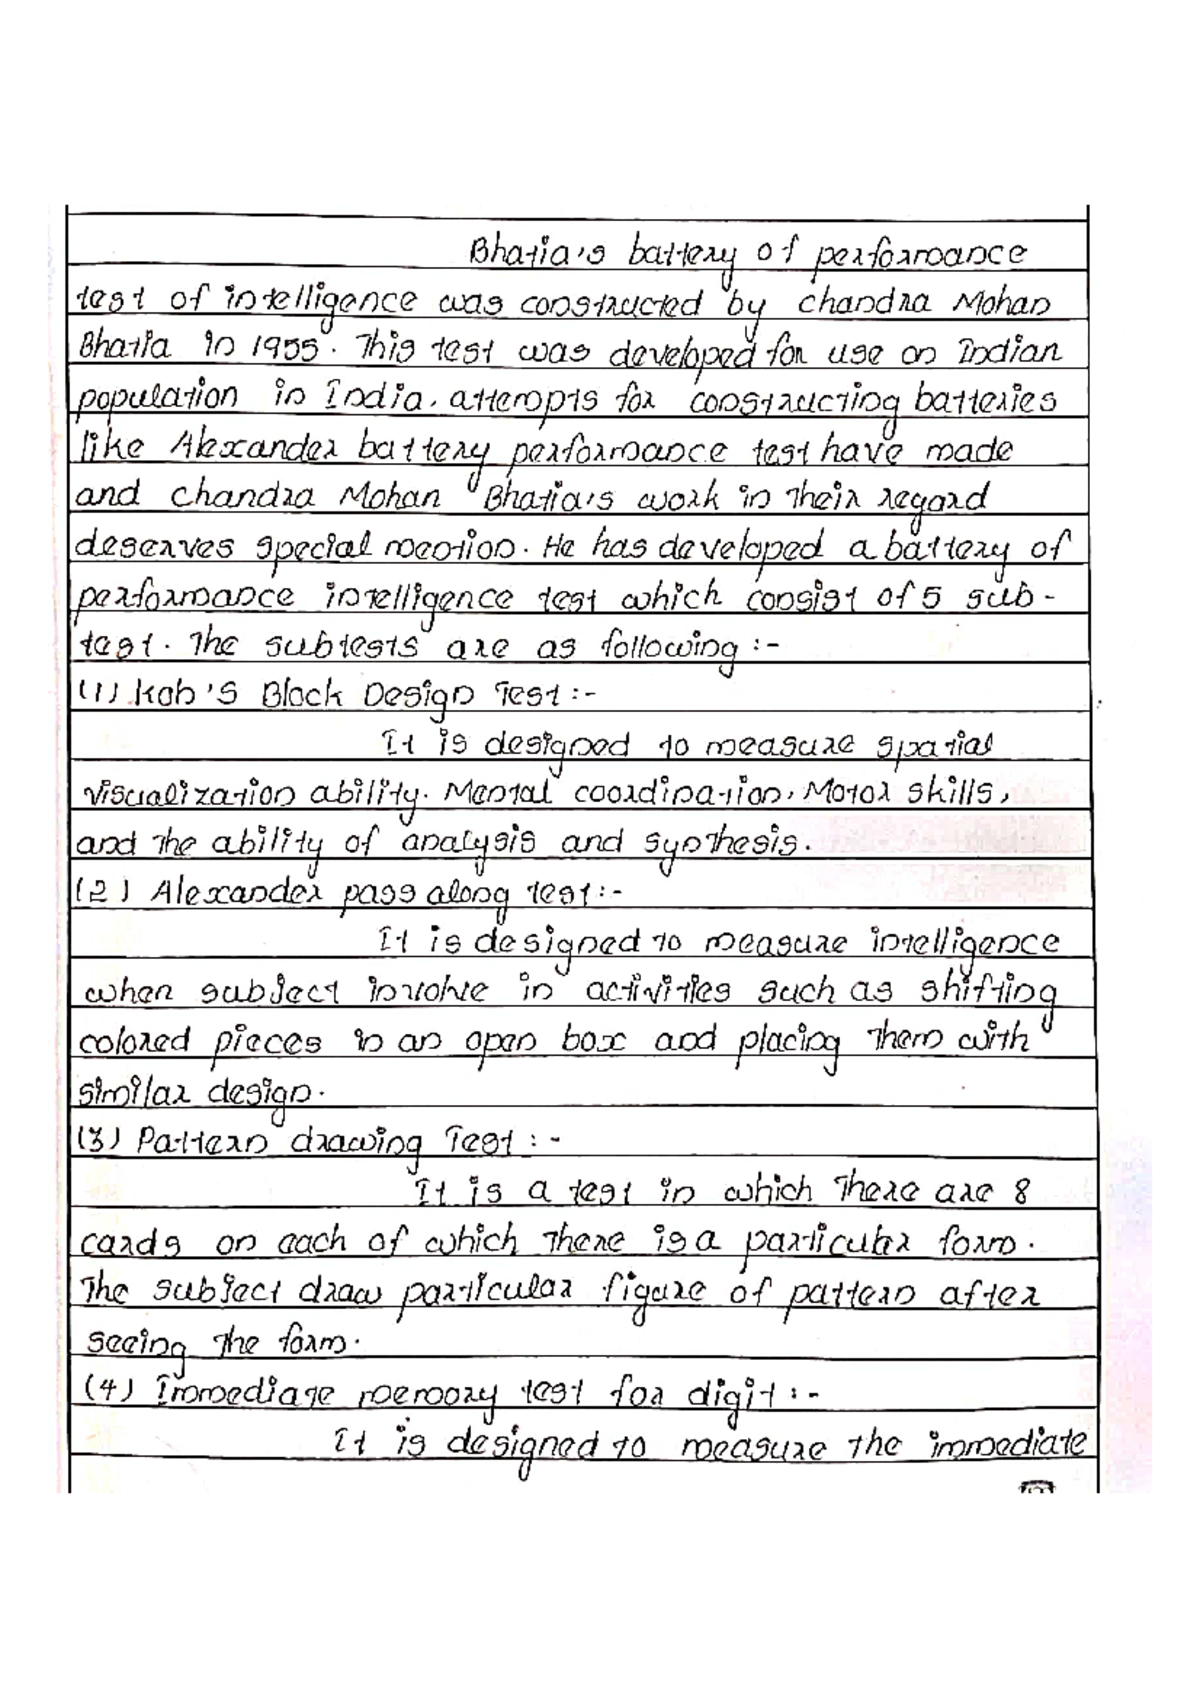 Bhatia's battery of performance
test of intelligence was constructed by chandra Mohan
Bhatia in 1955. This test was developed for use on Indian
population in India. attempts for constructing batteries
like Alexander battery performance test have made
and chandra Mohan Bhatia's work in their regard
deserves special mention. He has developed a battery of
performance intelligence test which consist of 5 sub-
test. The subtests are as following :-
(1) Koh's Block Design Test :-
It is designed to measure spatial
visualization ability. Mental coordination. Motor skills,
and the ability of analysis and synthesis.
(2) Alexander pass along test:-
It is designed to measure intelligence
when subject involve in activities such as shifting
colored pieces in an open box and placing them with
similar design.
(3) Pattern drawing Test :-
It is a test in which there are 8
cards on each of which there is a particular form.
The subject draw particular figure of pattern after
seeing the form.
(4) Immediate memory test for digit :-
It is designed to measure the immediate